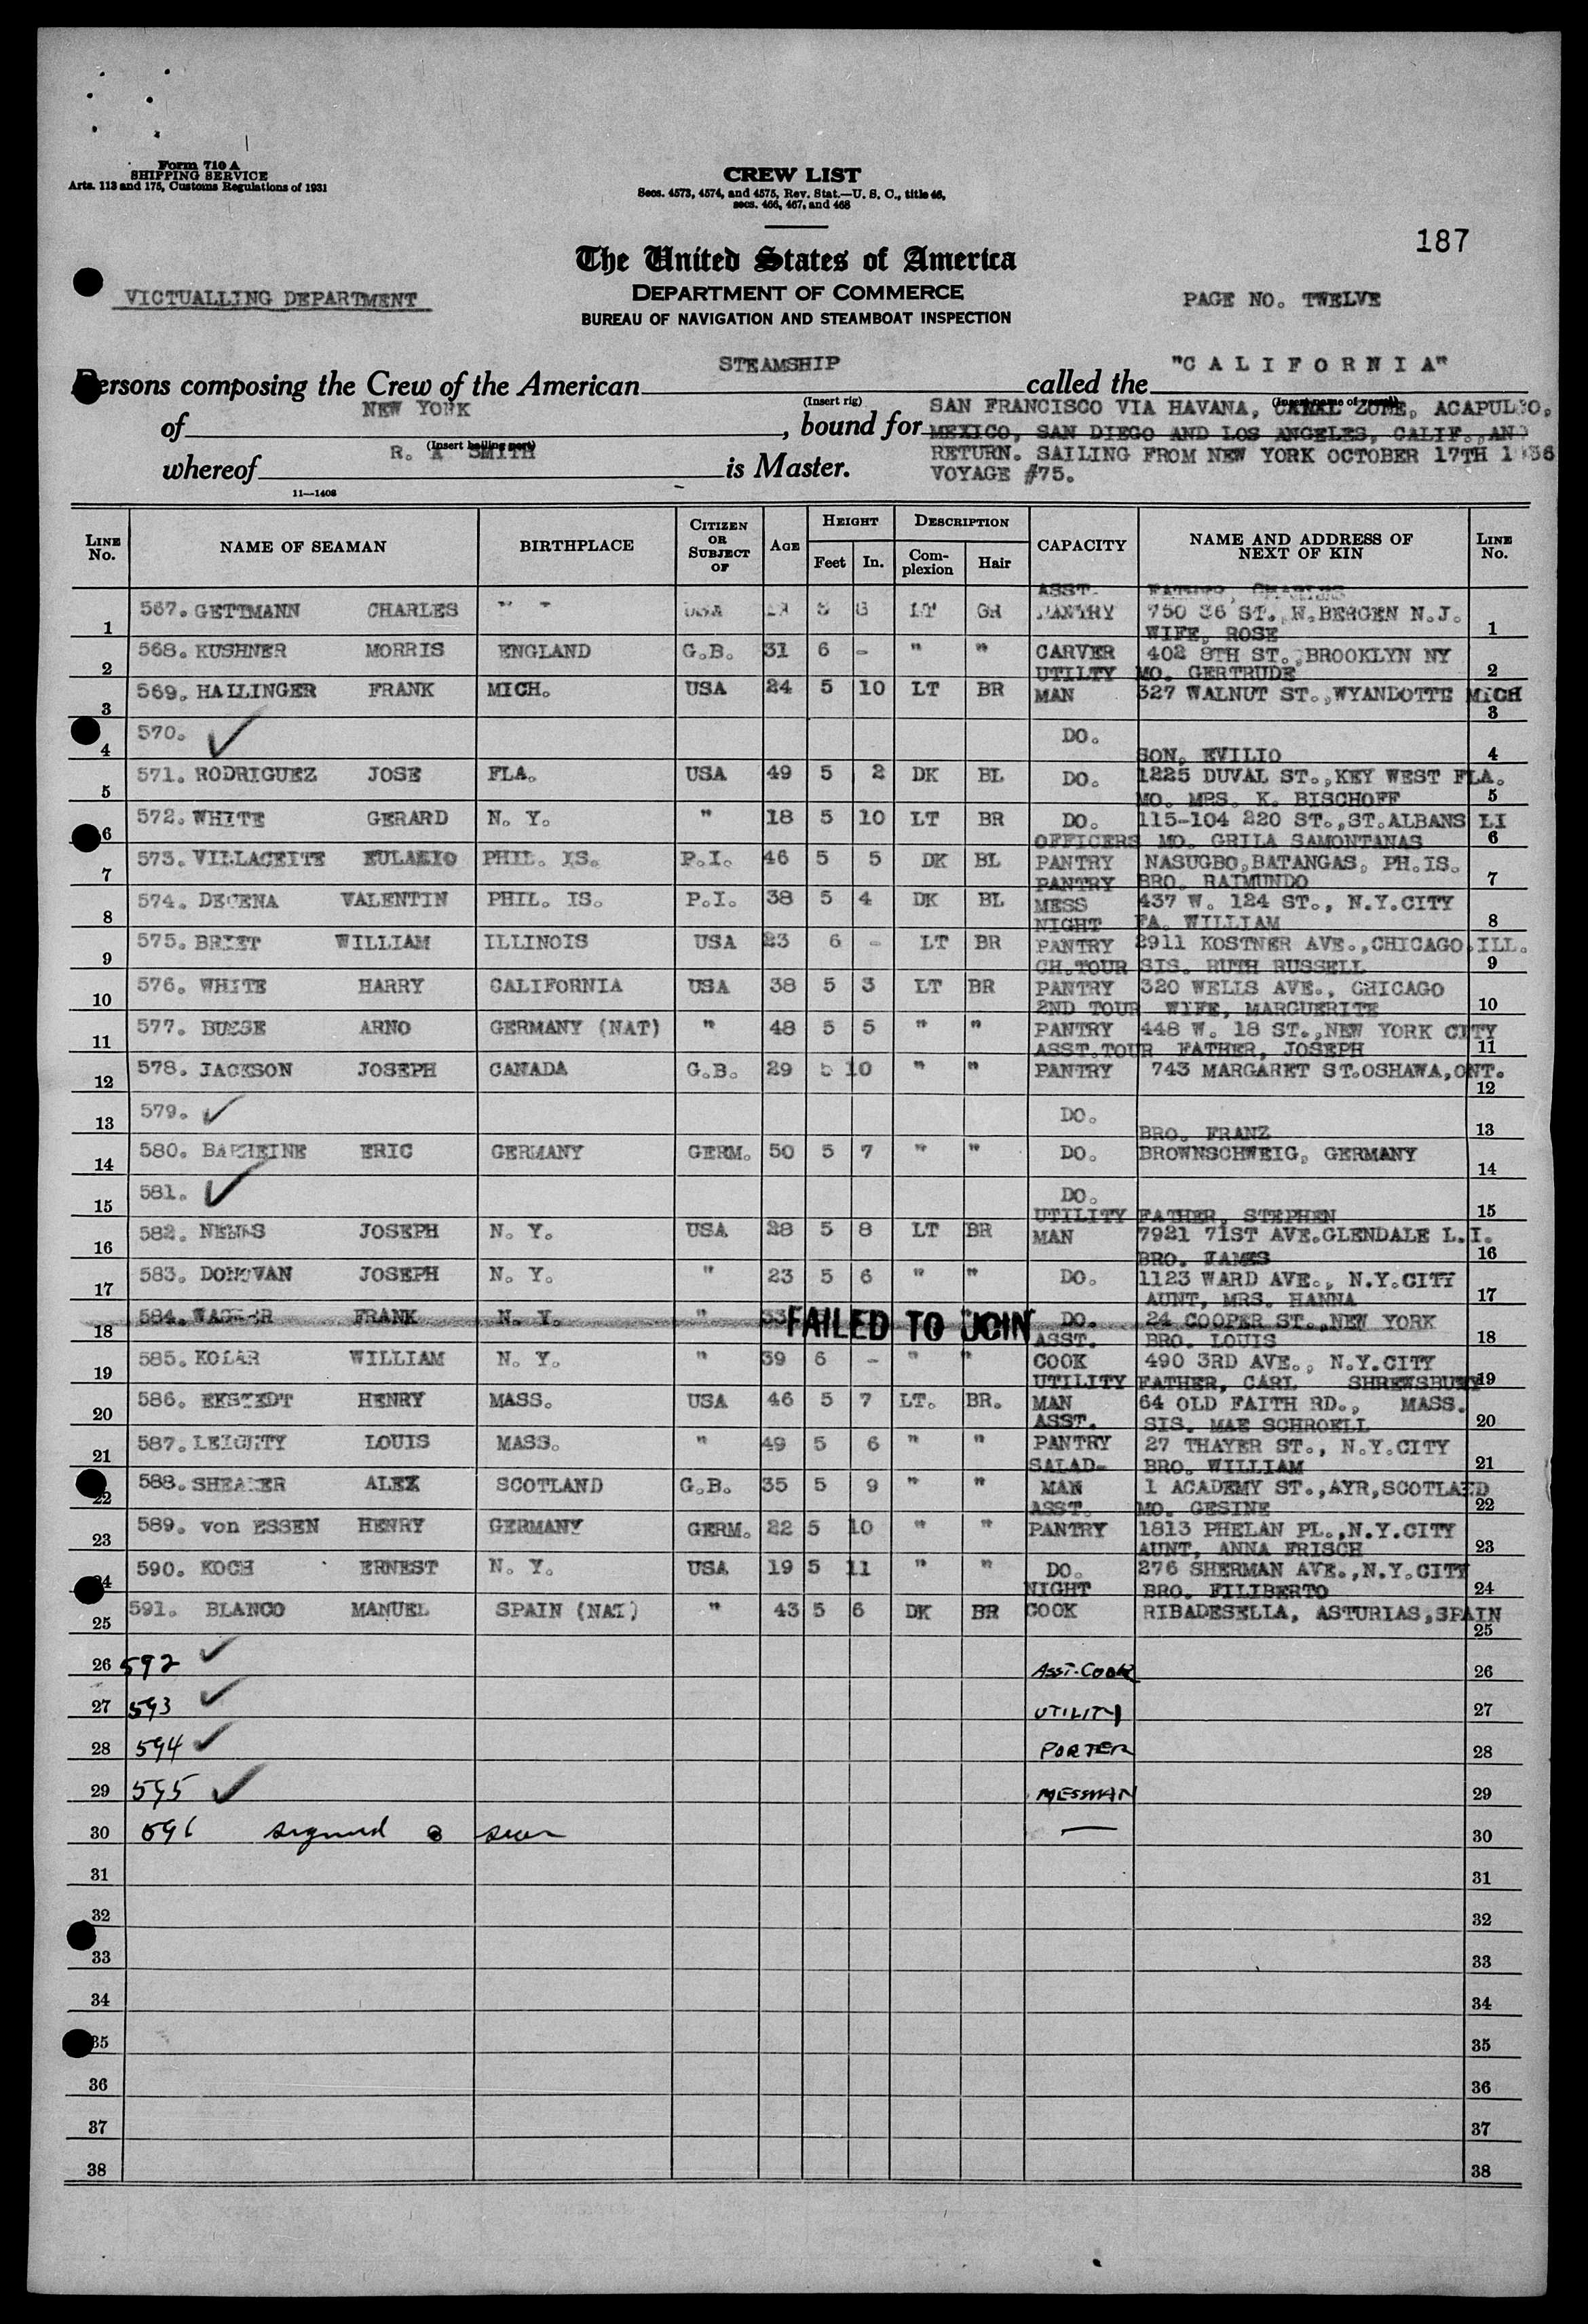 Form 710 A
SHIPPING SERVICE
Arts. 113 and 175, Customs Regulations of 1931
CREW LIST
Secs. 4573, 4574, and 4575, Rev. Stat.—U. S. C., title 46,
secs. 466, 467, and 468
187
The United States of America
DEPARTMENT OF COMMERCE
BUREAU OF NAVIGATION AND STEAMBOAT INSPECTION
VICTUALLING DEPARTMENT
PAGE NO. TWELVE
Persons composing the Crew of the American STEAMSHIP called the "CALIFORNIA"
(Insert rig) (Insert name of vessel)
of NEW YORK, bound for SAN FRANCISCO VIA HAVANA, CANAL ZONE, ACAPULCO,
(Insert hailing port) MEXICO, SAN DIEGO AND LOS ANGELES, CALIF., AND
whereof R. SMITH is Master. RETURN. SAILING FROM NEW YORK OCTOBER 17TH 1936
VOYAGE #75.
11—1408
LINE No. NAME OF SEAMAN BIRTHPLACE CITIZEN OR SUBJECT OF AGE HEIGHT Feet In. DESCRIPTION Complexion Hair CAPACITY NAME AND ADDRESS OF NEXT OF KIN LINE No.
1 567. GETTMANN CHARLES " " USA 5 LT ASST. PANTRY 750 36 ST., N.BERGEN N.J. 1
2 568. KUSHNER MORRIS ENGLAND G.B. 31 6 - " " CARVER WIFE, ROSE 402 8TH ST., BROOKLYN NY 2
3 569. HALLINGER FRANK MICH. USA 24 5 10 LT BR UTILTY MAN MO. GERTRUDE 327 WALNUT ST., WYANDOTTE MICH 3
4 570. ✓ DO. 4
5 571. RODRIGUEZ JOSE FLA. USA 49 5 2 DK BL DO. SON, EVILIO 1225 DUVAL ST., KEY WEST FLA. 5
6 572. WHITE GERARD N. Y. " 18 5 10 LT BR DO. MO. MRS. K. BISCHOFF 115-104 220 ST., ST.ALBANS LI 6
7 573. VILLACEITE EULALIO PHIL. IS. P.I. 46 5 5 DK BL OFFICERS PANTRY MO. GRILA SAMONTANAS NASUGBO, BATANGAS, PH.IS. 7
8 574. DECENA VALENTIN PHIL. IS. P.I. 38 5 4 DK BL PANTRY MESS BRO. RAIMUNDO 437 W. 124 ST., N.Y.CITY 8
9 575. BRIET WILLIAM ILLINOIS USA 23 6 - LT BR NIGHT PANTRY FA. WILLIAM 2911 KOSTNER AVE., CHICAGO. ILL. 9
10 576. WHITE HARRY CALIFORNIA USA 38 5 3 LT BR CH.TOUR PANTRY SIS. RUTH RUSSELL 320 WELLS AVE., CHICAGO 10
11 577. BUSSE ARNO GERMANY (NAT) " 48 5 5 " " 2ND TOUR PANTRY WIFE, MARGUERITE 448 W. 18 ST., NEW YORK CITY 11
12 578. JACKSON JOSEPH CANADA G.B. 29 5 10 " " ASST.TOUR PANTRY FATHER, JOSEPH 743 MARGARET ST.OSHAWA, ONT. 12
13 579. ✓ DO. 13
14 580. ERIC GERMANY GERM. 50 5 7 " " DO. BRO. FRANZ BROWNSCHWEIG, GERMANY 14
15 581. ✓ DO. 15
16 582. JOSEPH N. Y. USA 28 5 8 LT BR UTILITY MAN FATHER, STEPHEN 7921 71ST AVE.GLENDALE L.I. 16
17 583. DONOVAN JOSEPH N. Y. " 23 5 6 " " DO. BRO. JAMES 1123 WARD AVE., N.Y.CITY 17
18 584. FRANK N. Y. " 33 FAILED TO JOIN DO. AUNT, MRS. HANNA 24 COOPER ST., NEW YORK 18
19 585. KOLAR WILLIAM N. Y. " 39 6 - " " ASST. COOK BRO. LOUIS 490 3RD AVE., N.Y.CITY 19
20 586. EKSTEDT HENRY MASS. USA 46 5 7 LT. BR. UTILITY MAN FATHER, CARL SHREWSBURY 64 OLD FAITH RD., MASS. 20
21 587. LEIGHTY LOUIS MASS. " 49 5 6 " " ASST. PANTRY SIS. MAE SCHROELL 27 THAYER ST., N.Y.CITY 21
22 588. SHEARER ALEX SCOTLAND G.B. 35 5 9 " " SALAD- MAN BRO. WILLIAM 1 ACADEMY ST., AYR, SCOTLAND 22
23 589. von ESSEN HENRY GERMANY GERM. 22 5 10 " " ASST. PANTRY MO. GESINE 1813 PHELAN PL., N.Y.CITY 23
24 590. KOCH ERNEST N. Y. USA 19 5 11 " " DO. AUNT, ANNA FRISCH 276 SHERMAN AVE., N.Y.CITY 24
25 591. BLANCO MANUEL SPAIN (NAT) " 43 5 6 DK BR NIGHT COOK BRO. FILIBERTO RIBADESELLA, ASTURIAS, SPAIN 25
26 592 ✓ ASST. COOK 26
27 593 ✓ UTILITY 27
28 594 ✓ PORTER 28
29 595 ✓ MESSMAN 29
30 596 signed — 30
31 31
32 32
33 33
34 34
35 35
36 36
37 37
38 38